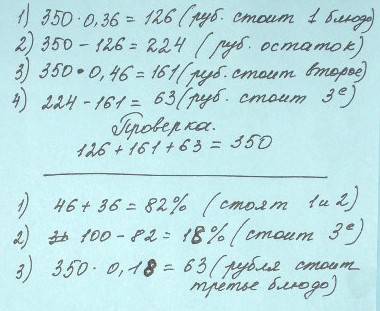 1) 350·0,36 = 126 (руб. стоит 1 блюдо)
2) 350 - 126 = 224 (руб. остаток)
3) 350·0,46 = 161 (руб. стоит второе)
4) 224 - 161 = 63 (руб. стоит 3е)
Проверка.
126 + 161 + 63 = 350
1) 46 + 36 = 82% (стоят 1 и 2)
2) 100 - 82 = 18% (стоит 3е)
3) 350·0,18 = 63 (рубля стоит
третье блюдо)